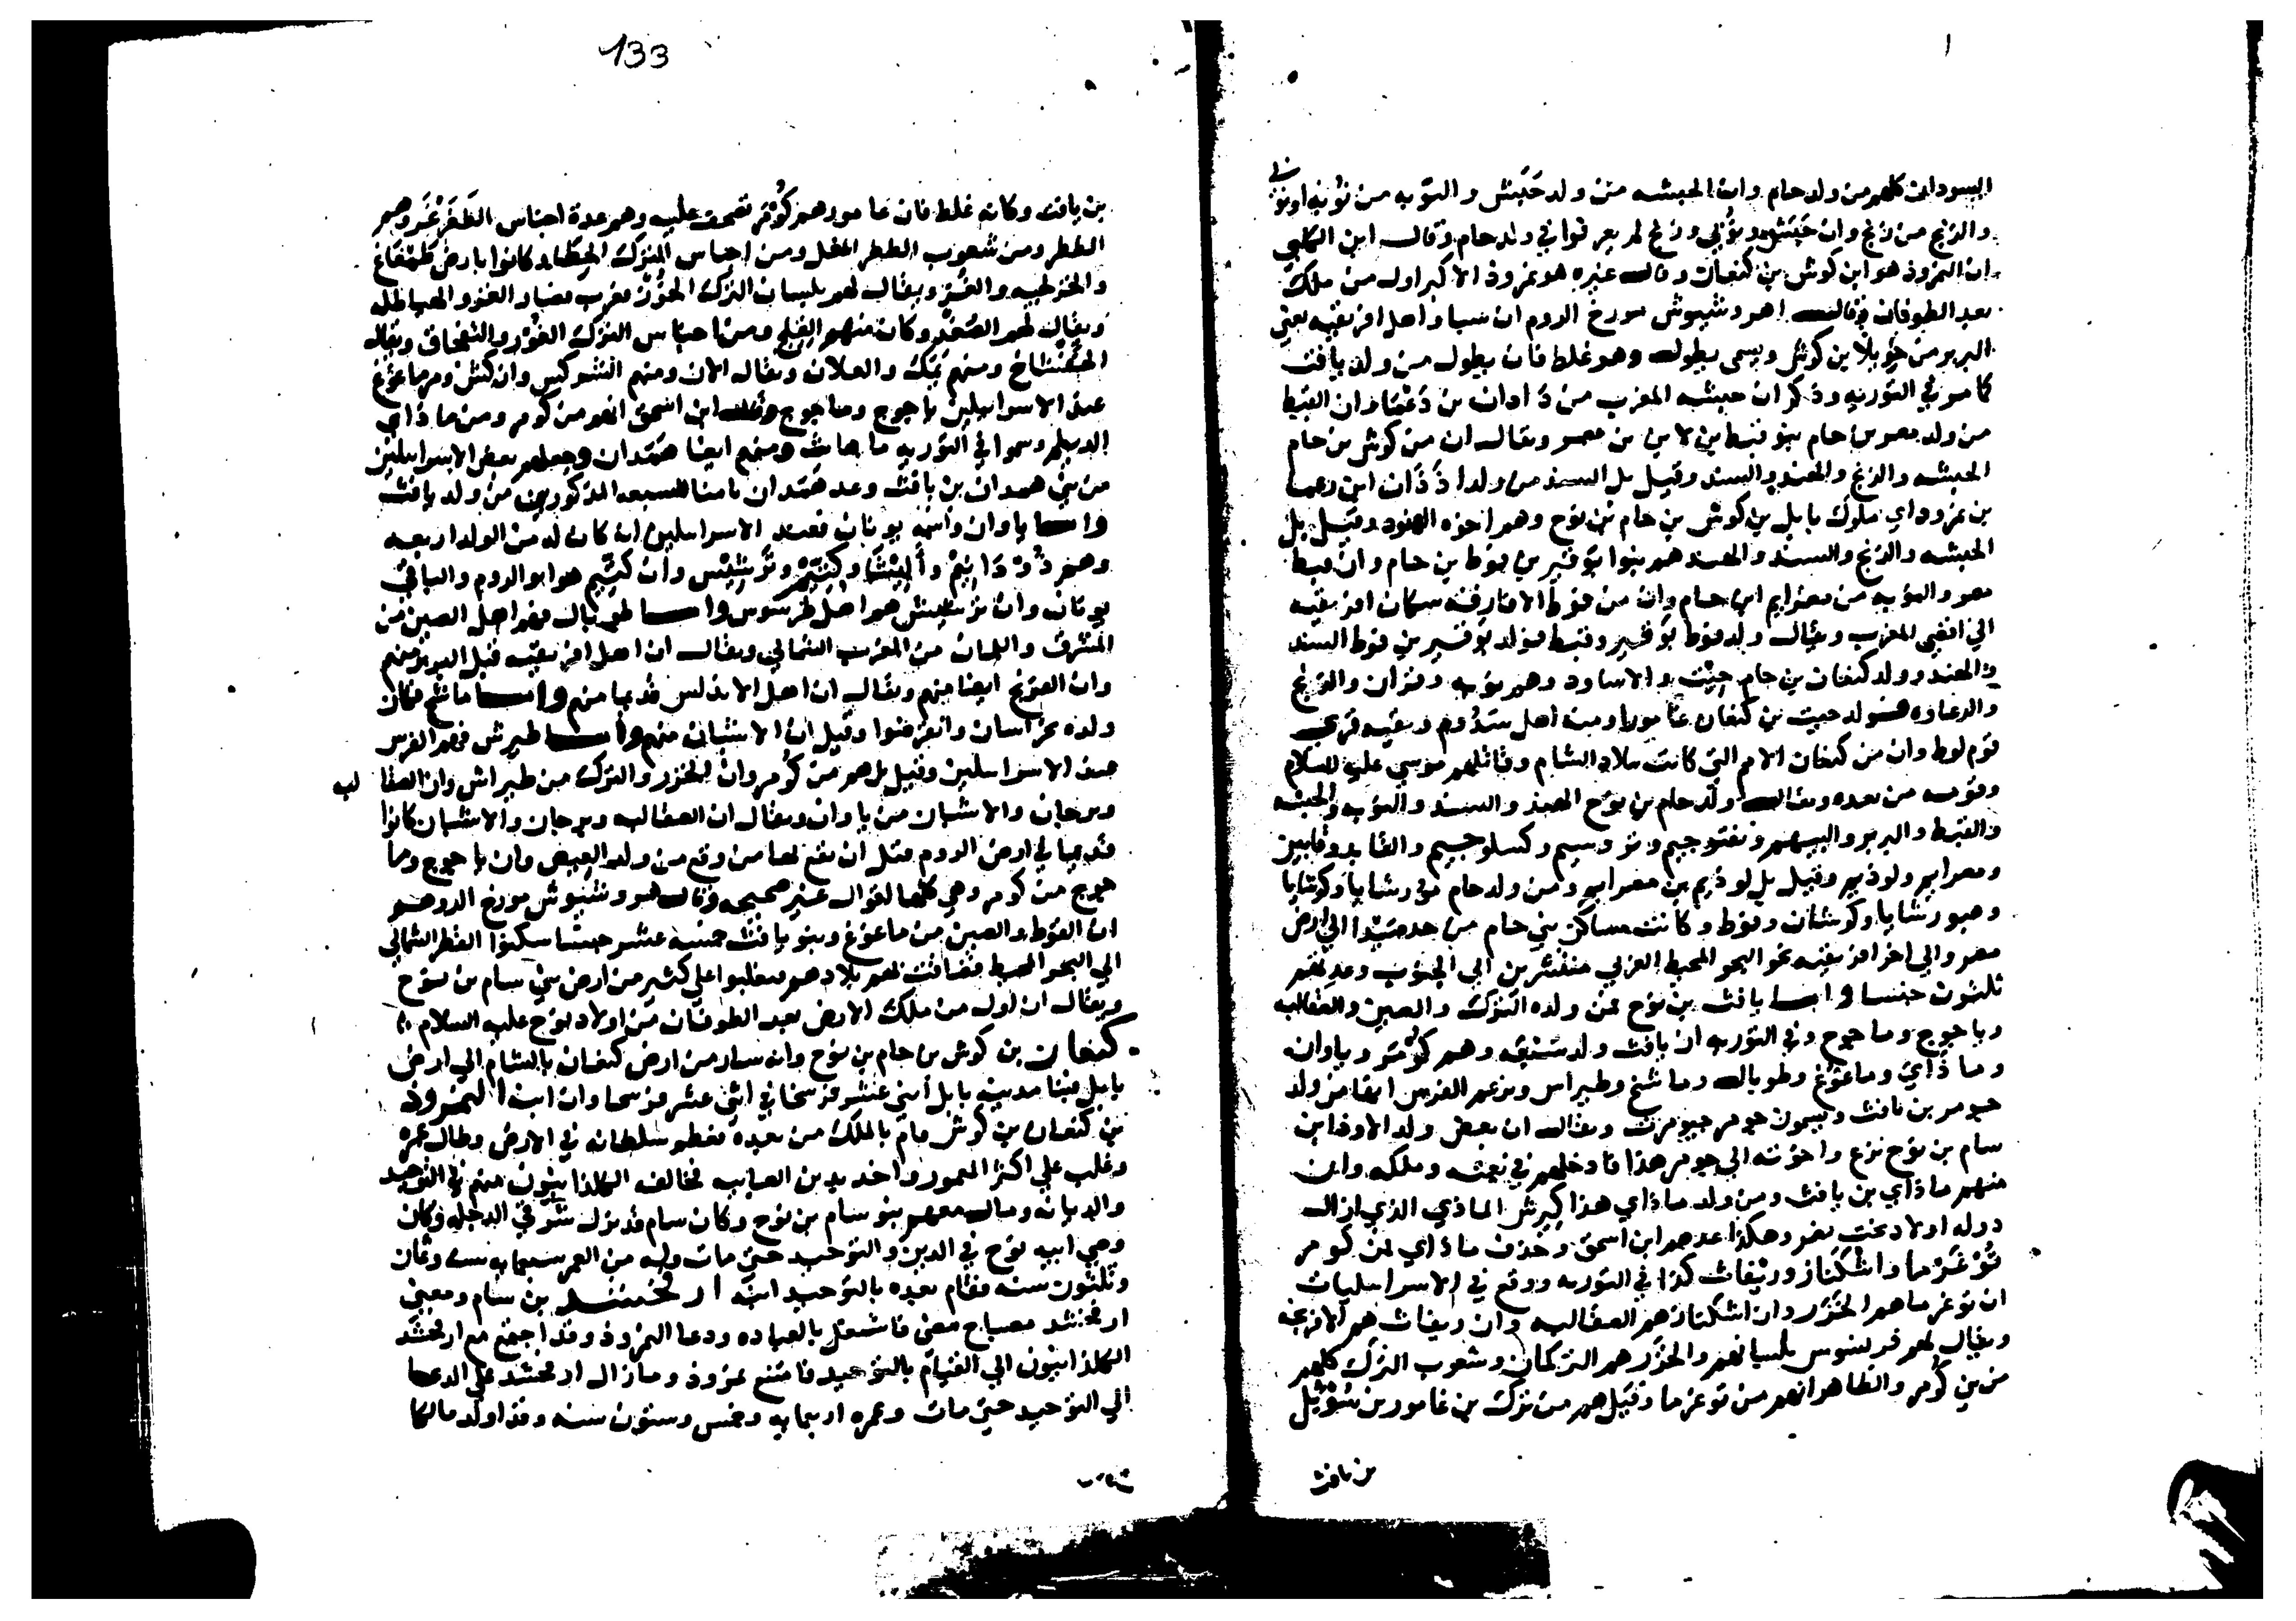 السودان كلهم من ولد حام وان الحبشه من ولد حَبَش والنوبه من نوبه او نوبي
والزنج من زنج وان حبش ونوبي وزنج لم يعرفوا في ولد حام وقال ابن الكلبي
ان النمرود هو ابن كوش بن كنعان وقال غيره هو نمروذ الاكبر اول من ملك
بعد الطوفان وقال هروشيوش مورخ الروم ان سبا واهل افريقيه يعني
البربر من حويلا بن كوش ويسمى يطول وهو غلط فان يطول من ولد يافث
كما مر في التوريه وذكر ان حبشه المغرب من دادان بن رعما وان القبط
من ولد مصر بن حام بنو قبط بن لاين بن مصر ويقال ان من كوش بن حام
الحبشه والزنج والهند والسند وقيل بل السند من ولد دَدَان ابن رعما
بن نمرود اي ملوك بابل بن كوش بن حام بن نوح وهم اخوه الهنود وقيل بل
الحبشه والزنج والسند والهند هم بنوا بوقير بن قوط بن حام وان قبط
مصر والنوبه من مصرايم ابن حام وان من قوط الافارقه سكان افريقيه
الي اقصى المغرب ويقال ولد قوط بوقير وقبط فولد بوقير بن قوط السند
والهند وولد كنعان بن حام حيث والاساود وهم نوبه وفزان والزنج
والزغاوه فولد حيث بن كنعان عامورا ومنه اهل سَدُوم وبقيه قرى
قوم لوط وان من كنعان الامم التي كانت ببلاد الشام وقاتلهم موسى عليه السلام
وقومه من بعده ويقال ولد حام بن نوح الهند والسند والنوبه والحبشه
والقبط والبربر
ومصرايم ولوذيم وقيل بل لوذيم بن مصرايم ومن ولد حام
وكوشان وقوط وكانت مساكن بني حام من حد صَيْدا الي ارض
مصر والي اخر افريقيه نحو البحر المحيط الغربي منتشرين الي الجنوب وعدتهم
ثلثون جنسا واما يافث بن نوح فمن ولده الترك والصين والصقالبه
وياجوج وماجوج وفي التوريه ان يافث ولد سبعه وهم كُومَر وياوان
وما ذَاي وماغوغ وطوبال وماشخ وطيراس وتزعم الفرس انها من ولد
جومر بن يافث ويسمون جومر جيومرت ويقال ان بعض ولد الاوذ ابن
سام بن نوح نزع واخوته الي جومر هذا فادخلهم في نعمته وملكه وان
منهم ماذاي بن يافث ومن ولد ماذاي هذا كيرش الماذي الذي ازال
دوله اولاد بخت نصر وهكذا عدهم ابن اسحق وحذف ماذاي فمن كومر
تُوغَرْما واشكناز وريفاث كذا في التوريه ووقع في الاسرايليات
ان توغرما هم الخَزَر وان اشكناز هم الصقالبه وان ريفاث هم الافرنجه
ويقال لهم فرنسوس بلسانهم والخزر هم التركمان وشعوب الترك كلهم
من بني كومر والظاهر انهم من توغرما وقيل هم من ترك بن غامور بن سُوَيْل
بن يافث
133
بن يافث وكانه غلط فان غامور هو كُومَر تصحف عليه وهم عدة اجناس الطَغَرْغَر وهم
الططر ومن شعوب الططر المغل ومن اجناس الترك الخَطَا وكانوا بارض طمغاج
والخزلجيه والغُز ويقال لهم بلسان الترك ... والهياطله
ويقال لهم الصُغد وكان منهم الخلج ومن اجناس الترك الغُوْر والقفجاق ويقال
الخَفْشاخ ومنهم يَمَك والعلان ويقال الان ومنهم الشركس وازكش ومن ماغوغ
عند الاسرايلين ياجوج وماجوج وقال ابن اسحق انهم من كومر ومن ماذاي
الديلم وسموا في التوريه ماهان ومنهم ايضا هَمَدان وجعلهم بعض الاسرايلين
من بني همدان بن يافث وعد هَمَدان ثامنا للسبعه المذكورين من ولد يافث
واما ياوان واسمه يونان فعند الاسرايلين انه كان له من الولد اربعه
وهم دُودَانيم وأليشا وكيتيم وترشيش وان كيتيم هو ابو الروم والباقي
يونان وان ترشيش هم اهل طرسوس واما طوبال فهم اهل الصين من
المشرق واللمان من المغرب الشمالي ويقال ان اهل افريقيه قبل البربر منهم
وان الفرنج ايضا منهم ويقال ان اهل الاندلس قديما منهم واما ماشخ فكان
ولده بخراسان وانقرضوا وقيل ان الاشبان منهم واما طيرش فهم الفرس
عند الاسرايلين وقيل بل هم من كُومر وان الخزر والترك من طيراش وان الصقالبه
وبرجان والاشبان من ياوان ويقال ان الصقالبه وبرجان والاشبان كانوا
قديما في ارض الروم قبل ان يقع لها من وقع من ولد العيص وان ياجوج وما
جوج من كومر وهي كلها اقوال غير صحيحه وقال هروشيوش مورخ الروم
ان القوط والصين من ماغوغ وبنو يافث خمسه عشر جنسا سكنوا القطر الشمالي
الي البحر المحيط فضاقت بهم بلادهم فغلبوا علي كثير من ارض بني سام بن نوح
ويقال ان اول من ملك الارض بعد الطوفان من اولاد نوح عليه السلام
كنعان بن كوش بن حام بن نوح وانه سار من ارض كنعان بالشام الي ارض
بابل فبنا مدينه بابل اثني عشر فرسخا في اثني عشر فرسخا وان ابنه النمروذ
بن كنعان بن كوش قام بالملك من بعده فعظم سلطانه في الارض وطال عمره
وغلب علي اكثر المعمور واخذ بدين الصابيه فخالفه الكلدانيون منهم في التوحيد
والديانه ومال معهم بنو سام بن نوح وكان سام قد نزل شرقي الدجله وكان
وصي ابيه نوح في الدين والتوحيد حتى مات وله من العمر سبمايه سنه وثمان
وثلثون سنه فقام بعده بالتوحيد ابنه ارفخشد بن سام ومعنى
ارفخشد مصباح مضي فاشتغل بالعباده ودعا النمروذ وقد اجتمع مع ارفخشد
الكلدانيون الي القيام بالتوحيد فامتنع نمروذ وما زال ارفخشد علي الدعا
الي التوحيد حتى مات وعمره اربعمايه وخمس وستون سنه وقد اولد مالكا